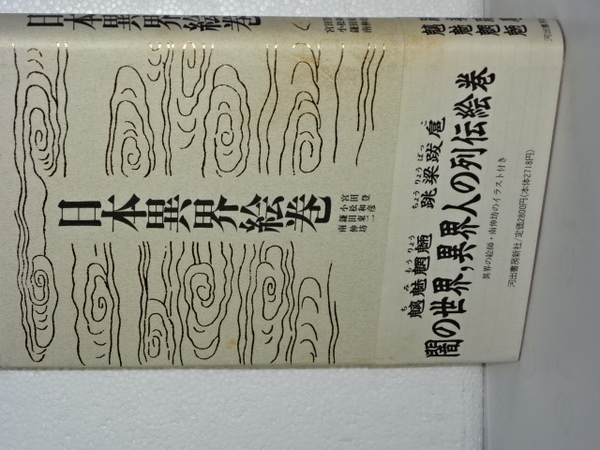 日本異界絵巻
宮田登
小松和彦
鎌田東二
南伸坊
ちみもうりょう
魑魅魍魎
ちょうりょうばっこ
跳梁跋扈
闇の世界,異界人の列伝絵巻
異界の絵師・南伸坊のイラスト付き
河出書房新社/定価2800円(本体2718円)
日本異界絵巻